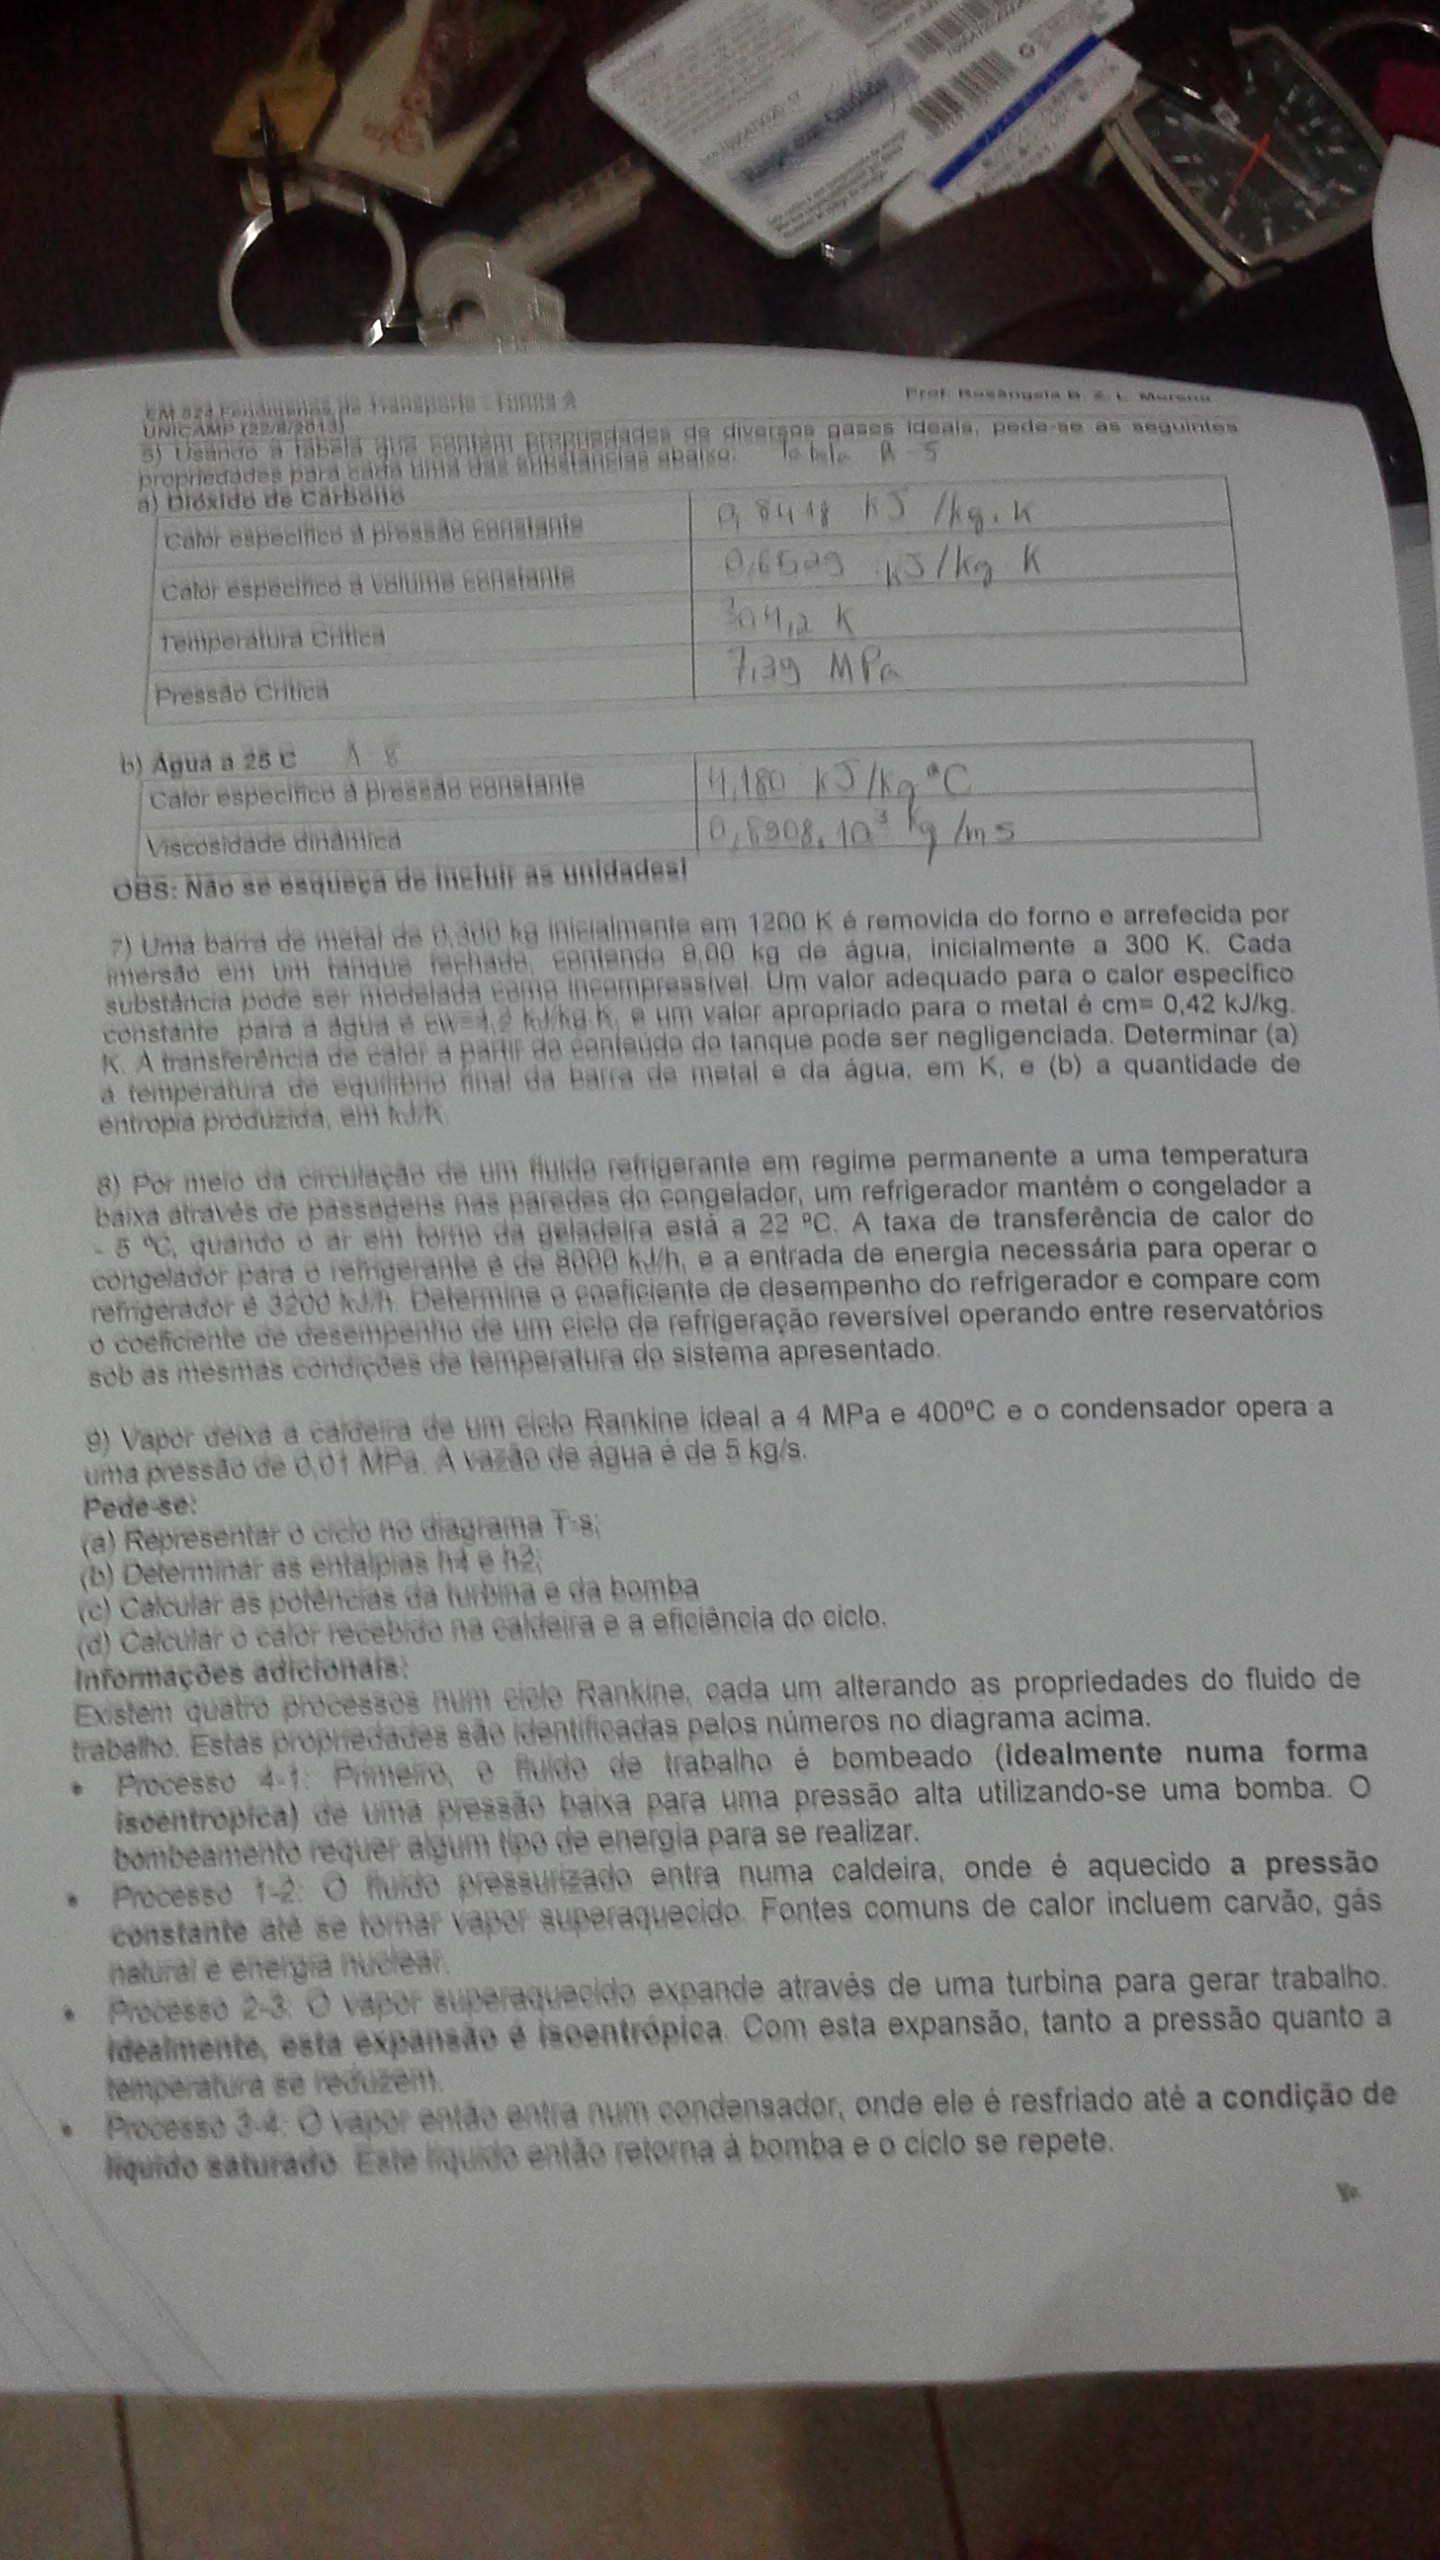 EM 524 Fenômenos de Transporte - Turma A
Prof. Rosângela B. Z. L. Moreno
UNICAMP (22/8/2013)
5) Usando a tabela que contém propriedades de diversos gases ideais, pede-se as seguintes
propriedades para cada uma das substâncias abaixo. Tabela A-5
a) Dióxido de Carbono
Calor específico a pressão constante 0,8418 kJ/kg.K
Calor específico a volume constante 0,6529 kJ/kg K
Temperatura Crítica 304,2 K
Pressão Crítica 7,39 MPa
b) Água a 25 C A-8
Calor específico a pressão constante 4,180 kJ/kg °C
Viscosidade dinâmica 0,8908.10³ kg/ms
OBS: Não se esqueça de incluir as unidades!
7) Uma barra de metal de 0,300 kg inicialmente em 1200 K é removida do forno e arrefecida por
imersão em um tanque fechado, contendo 9,00 kg de água, inicialmente a 300 K. Cada
substância pode ser modelada como incompressível. Um valor adequado para o calor específico
constante para a água é cw=4,2 kJ/kg K, e um valor apropriado para o metal é cm= 0,42 kJ/kg.
K. A transferência de calor a partir do conteúdo do tanque pode ser negligenciada. Determinar (a)
a temperatura de equilíbrio final da barra de metal e da água, em K, e (b) a quantidade de
entropia produzida, em kJ/K.
8) Por meio da circulação de um fluido refrigerante em regime permanente a uma temperatura
baixa através de passagens nas paredes do congelador, um refrigerador mantém o congelador a
- 5 ºC, quando o ar em torno da geladeira está a 22 ºC. A taxa de transferência de calor do
congelador para o refrigerante é de 8000 kJ/h, e a entrada de energia necessária para operar o
refrigerador é 3200 kJ/h. Determine o coeficiente de desempenho do refrigerador e compare com
o coeficiente de desempenho de um ciclo de refrigeração reversível operando entre reservatórios
sob as mesmas condições de temperatura do sistema apresentado.
9) Vapor deixa a caldeira de um ciclo Rankine ideal a 4 MPa e 400ºC e o condensador opera a
uma pressão de 0,01 MPa. A vazão de água é de 5 kg/s.
Pede-se:
(a) Representar o ciclo no diagrama T-s;
(b) Determinar as entalpias h4 e h2;
(c) Calcular as potências da turbina e da bomba
(d) Calcular o calor recebido na caldeira e a eficiência do ciclo.
Informações adicionais:
Existem quatro processos num ciclo Rankine, cada um alterando as propriedades do fluido de
trabalho. Estas propriedades são identificadas pelos números no diagrama acima.
• Processo 4-1: Primeiro, o fluido de trabalho é bombeado (idealmente numa forma
isoentropica) de uma pressão baixa para uma pressão alta utilizando-se uma bomba. O
bombeamento requer algum tipo de energia para se realizar.
• Processo 1-2: O fluido pressurizado entra numa caldeira, onde é aquecido a pressão
constante até se tornar vapor superaquecido. Fontes comuns de calor incluem carvão, gás
natural e energia nuclear.
• Processo 2-3: O vapor superaquecido expande através de uma turbina para gerar trabalho.
Idealmente, esta expansão é isoentrópica. Com esta expansão, tanto a pressão quanto a
temperatura se reduzem.
• Processo 3-4: O vapor então entra num condensador, onde ele é resfriado até a condição de
líquido saturado. Este líquido então retorna à bomba e o ciclo se repete.